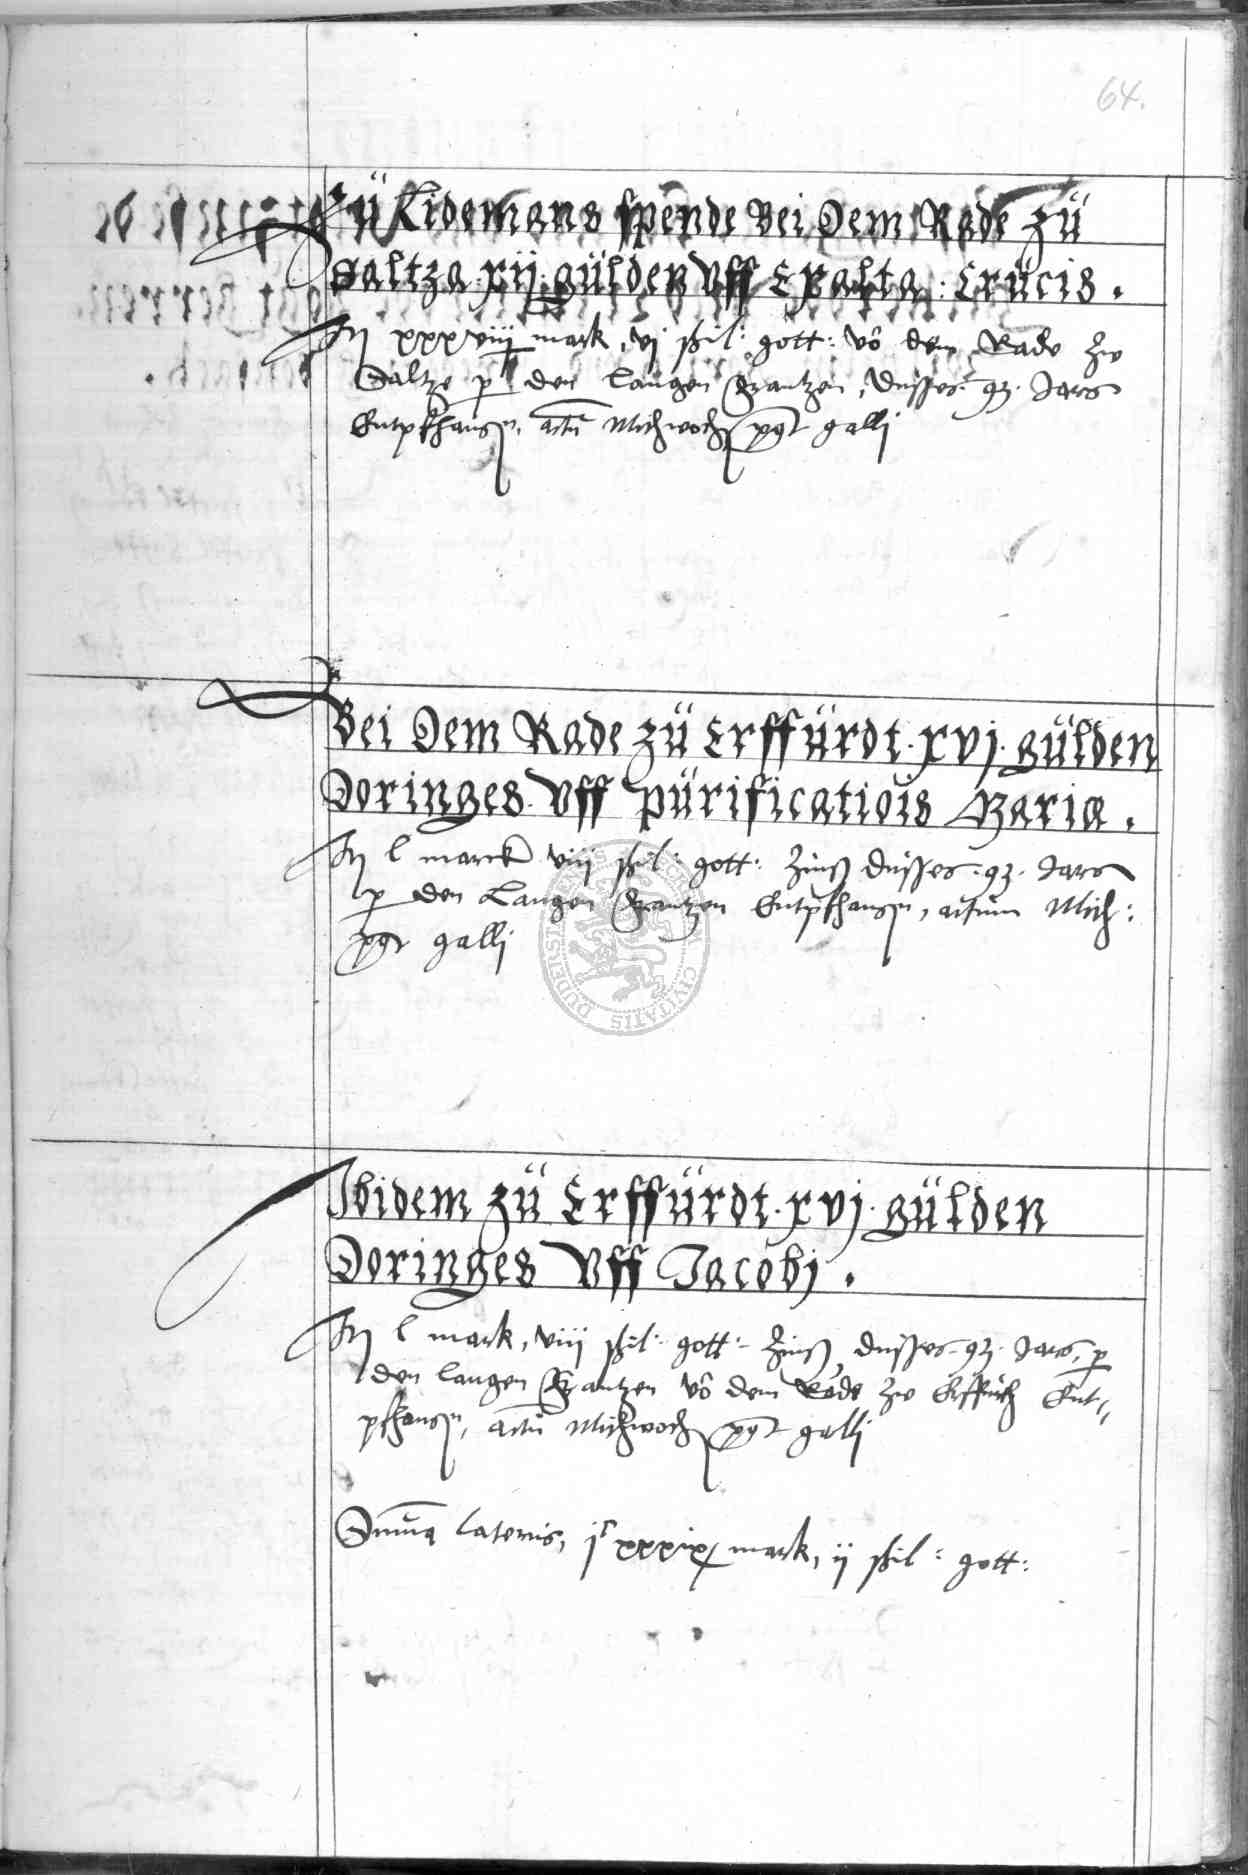 64.
Zü Lidemans spende Bei Dem Rade zü
Saltza .xij. gülden Vff Exalta: Crücis.
xxxviij mark, vj ßil: gott: vō dem Rade zw
Saltze p den langen Frantzen, dusses 93. Jars
Entpfhangn, actū Mithwoch pqt galli
Bei Dem Rade zü Erffürdt .xvj. gülden
Doringes Vff pürificatiois Maria.
l marck viij ßil: gott: zinß dusses .93. Jars
p den Langen Frantzen Entpfhangn, actum Mith:
pqt galli
Ibidem zü Erffürdt .xvj. gülden
Doringes Vff Jacobj.
l mark, viij ßil: gott: zinß, dusses 93. Jars, p
den langen Frantzen vō dem Rade zw Erffurth Ent-
pfhangn, actū Mithwoch pqt galli
Suma lateris, jc xxxix mark, ij ßil: gott:
DUDERSTADENSIS CIVITATIS